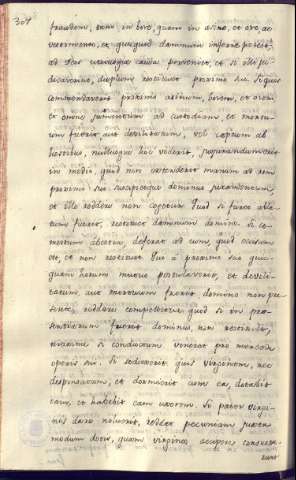 304
fraudem, tam in bove, quam in asino, et ove ac
vestimento, et quidquid damnum inferre potest,
ad Deos utriusque causa perveniet, et si illi ju-
dicaverint, duplum restituet proximo suo. Si quis
commendaverit proximo asinum, bovem, et ovem
et omne jumentum ad custodiam, et mortuum
fuerit aut debilitatum, vel captum ab
hostibus, nullusque hoc viderit, jusjurandum erit
in medio, quod non extenderit manum ad rem
proximi sui suscipietque dominus juramentum,
et ille reddere non cogetur. Quod si furto abla-
tum fuerit, restituet damnum domino. Si co-
mestum a bestia, deferat ad eum, quod occisum
est, et non restituet. Qui a proximo suo quid-
quam horum mutuo postulaverit, et debili-
tatum, aut mortuum fuerit domino non pre-
sente, reddere compelletur quod si in pre-
sentiarum fuerit dominus, non restituet,
maxime si conductum venerat pro mercede
operis sui. Si seduxerit quis virginem, nec
desponsatam, et dormierit cum ea, dotabit
eam, et habebit eam uxorem. Si pater virgi-
nis dare noluerit, reddet pecuniam juxta
modum dotis, quam virgines accipere consueve-
runt